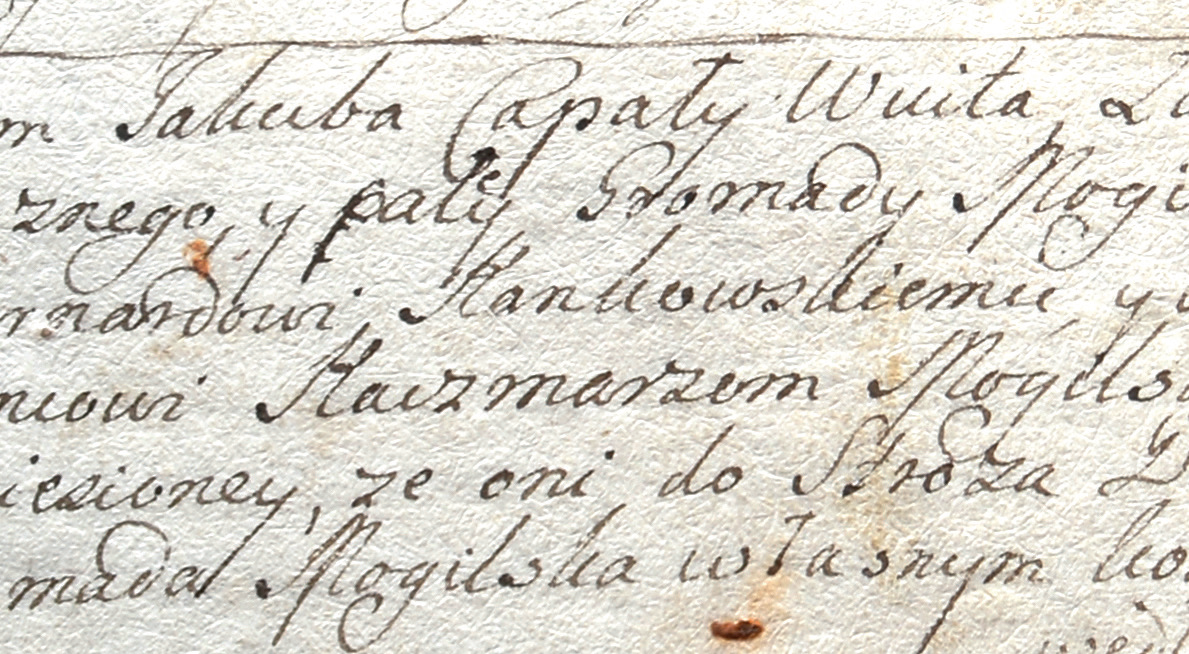 m Jakuba Capały Wuita, Zu
znego, y całey Gromady Mogi
rnardowi, Kankowskiemu, y
niowi Kaczmarzom Mogils
iesioney, ze oni do Stroza
mada Mogilska własnym kos
wed